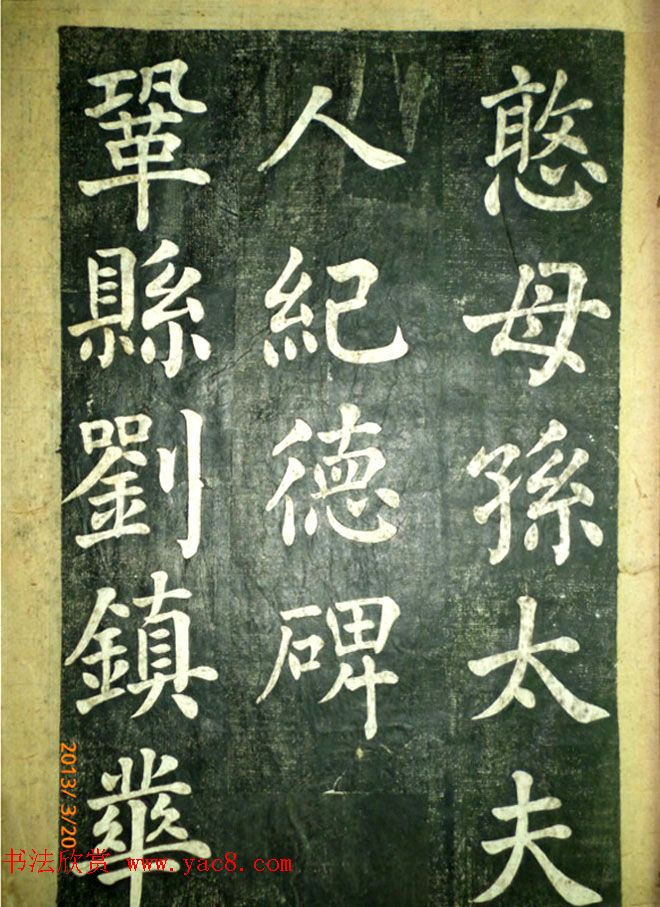 憨母孫太夫
人紀德碑
鞏縣劉鎮華
2013/3/20
书法欣赏 www.yac8.com